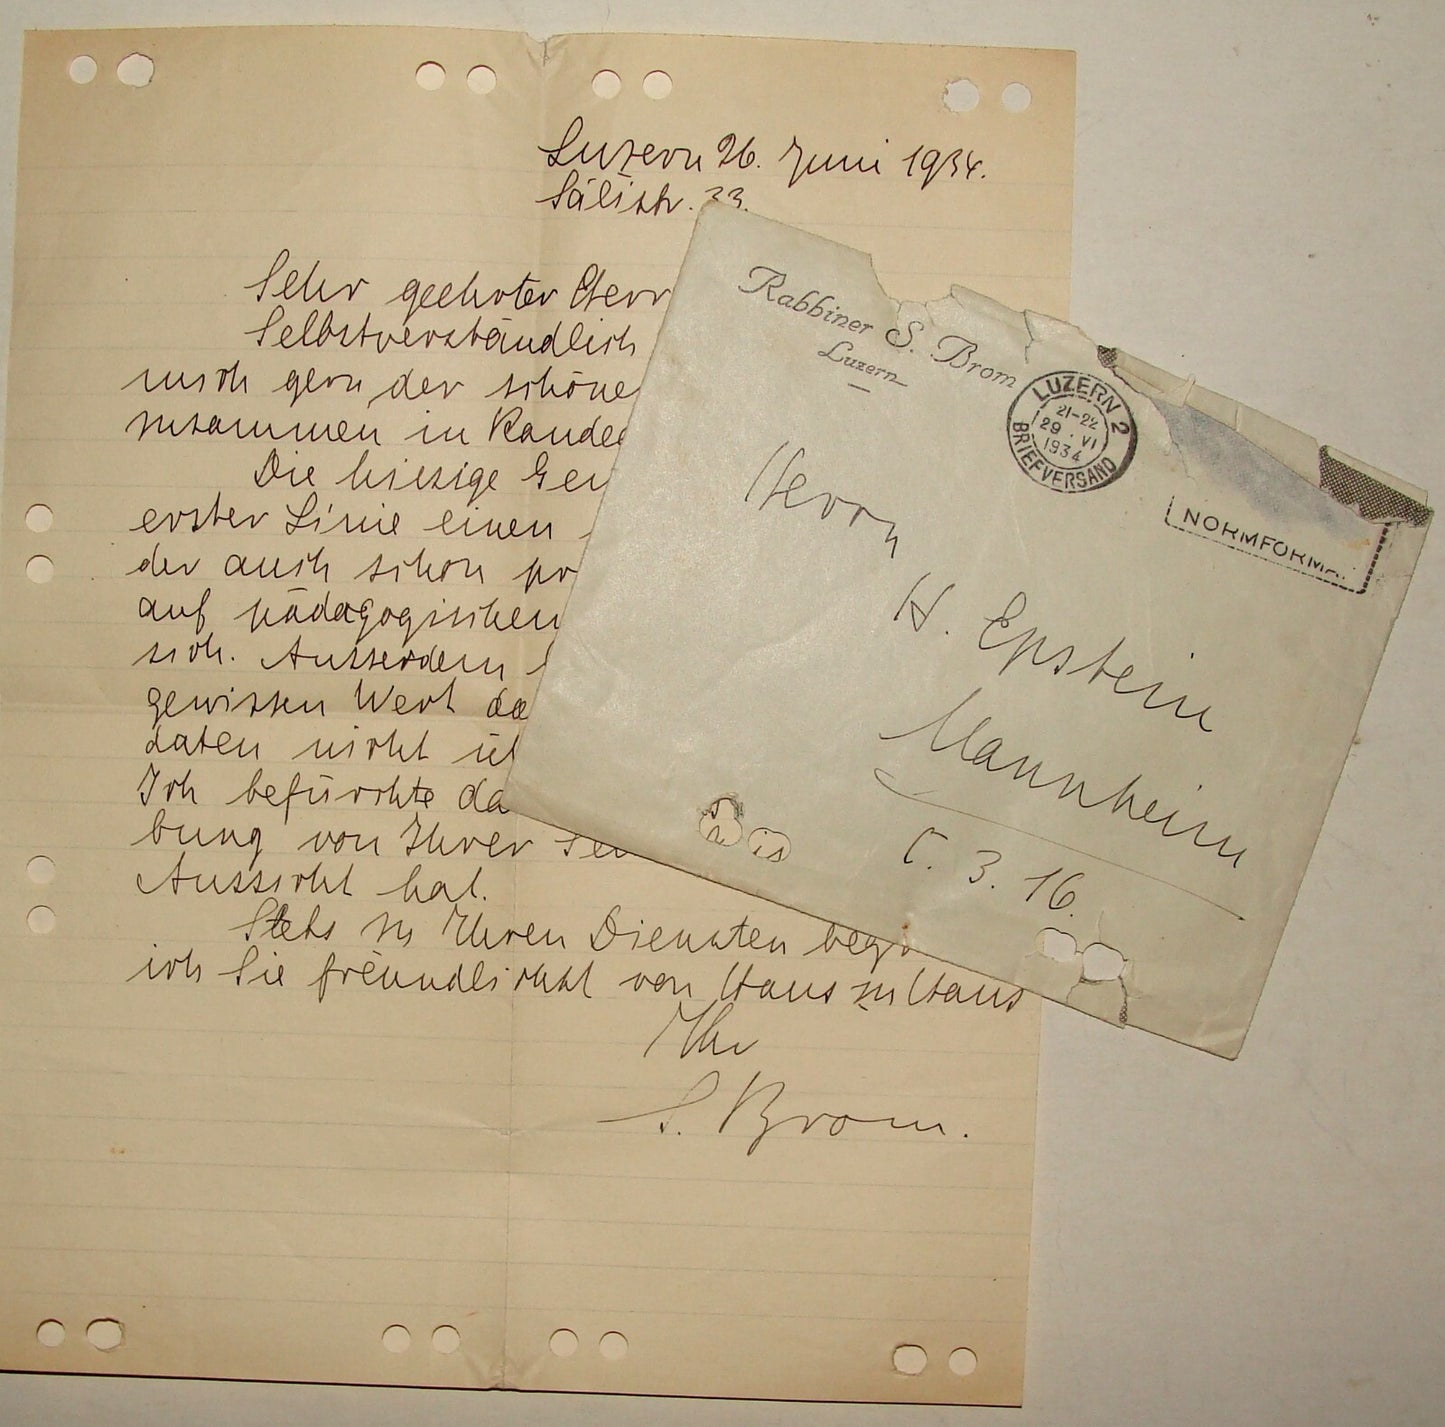 Luzern 26. Juni 1934.
Sälistr. 33.
Sehr geehrter Herr
Selbstverständlich
mich gern der schöne
zusammen in Kande
Die hiesige Gem
erster Linie einen
der auch schon pr
auf pädagogischen
sich. Ausserdem
gewissen Wert da
daten nicht
Ich befürchte da
bung von Ihrer Sei
Aussicht hat.
Stets zu Ihren Diensten begr
ich Sie freundlichst von Haus zu Haus
Ihr
S. Brom.
Rabbiner S. Brom
Luzern
LUZERN 2
21-22
29. VI
1934
BRIEFVERSAND
NORMFORMA
Herrn
H. Epstein
Mannheim
C. 3. 16.